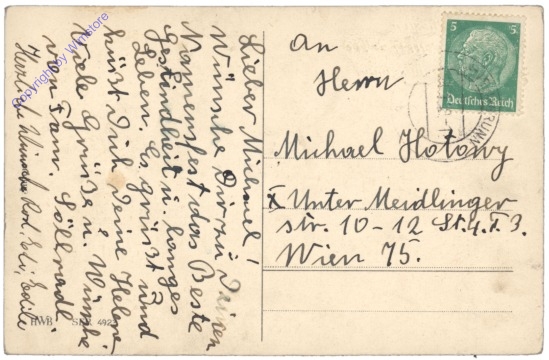 Lieber Michael!
Wünsche Dir zu Deinen
Namensfest das Beste
Gesundheit u. langes
Leben. Es grüßt und
küßt Dich Deine Helene
Viele Grüße u. Wünsche
von Fam. Söllradl
Herzliche Wünsche
HWB SER 492
An
Herrn
Michael Hotowy
X Unter Meidlinger
str. 10-12 St. 4. T. 3.
Wien 75.
5 5
Deutsches Reich
Copyright by Winstore